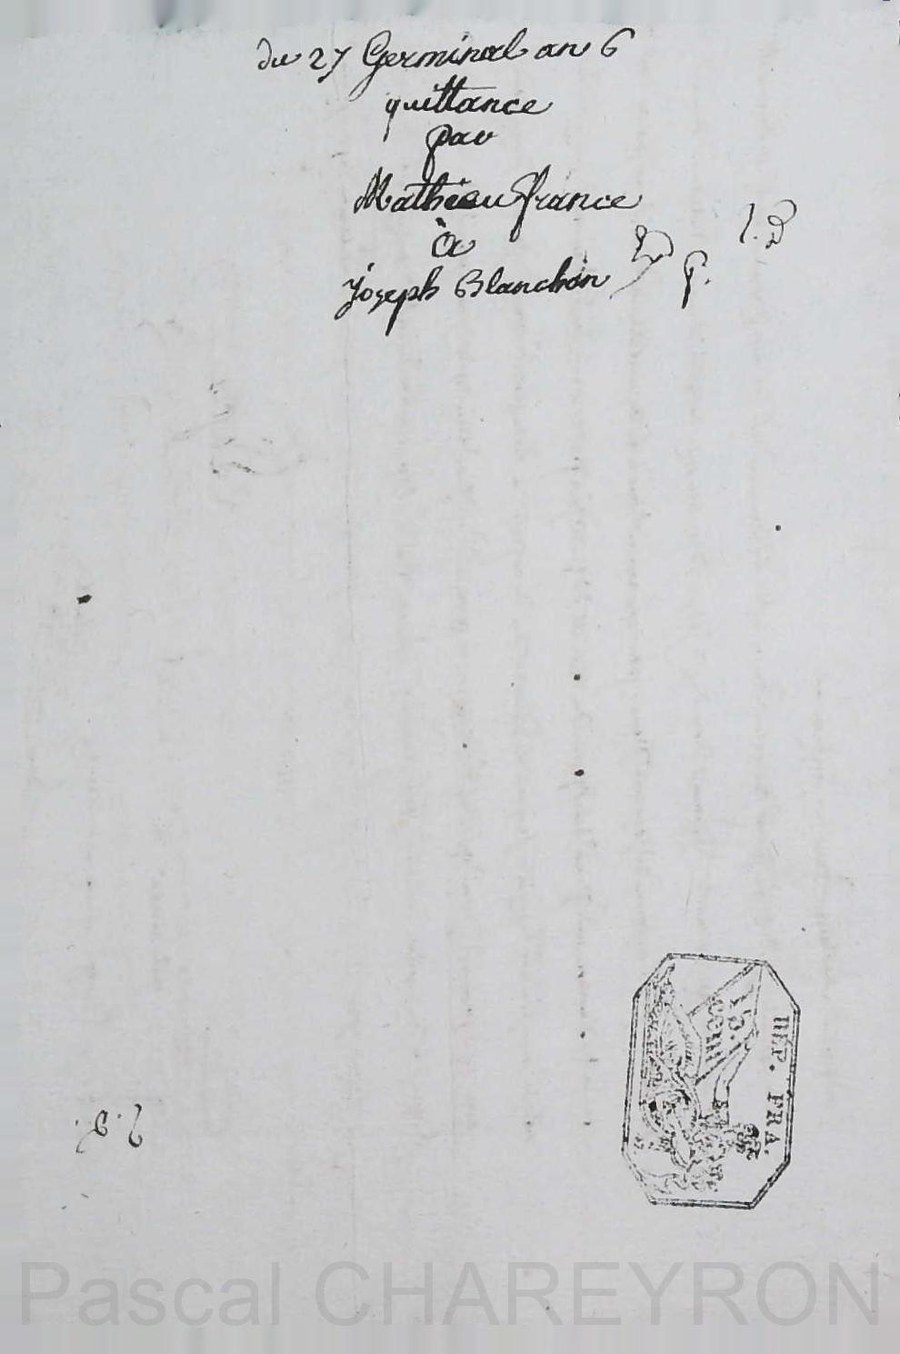 du 27 Germinal an 6
quittance
par
Mathieu france
à
Joseph Blanchon
RÉP. FRA.
Pascal CHAREYRON